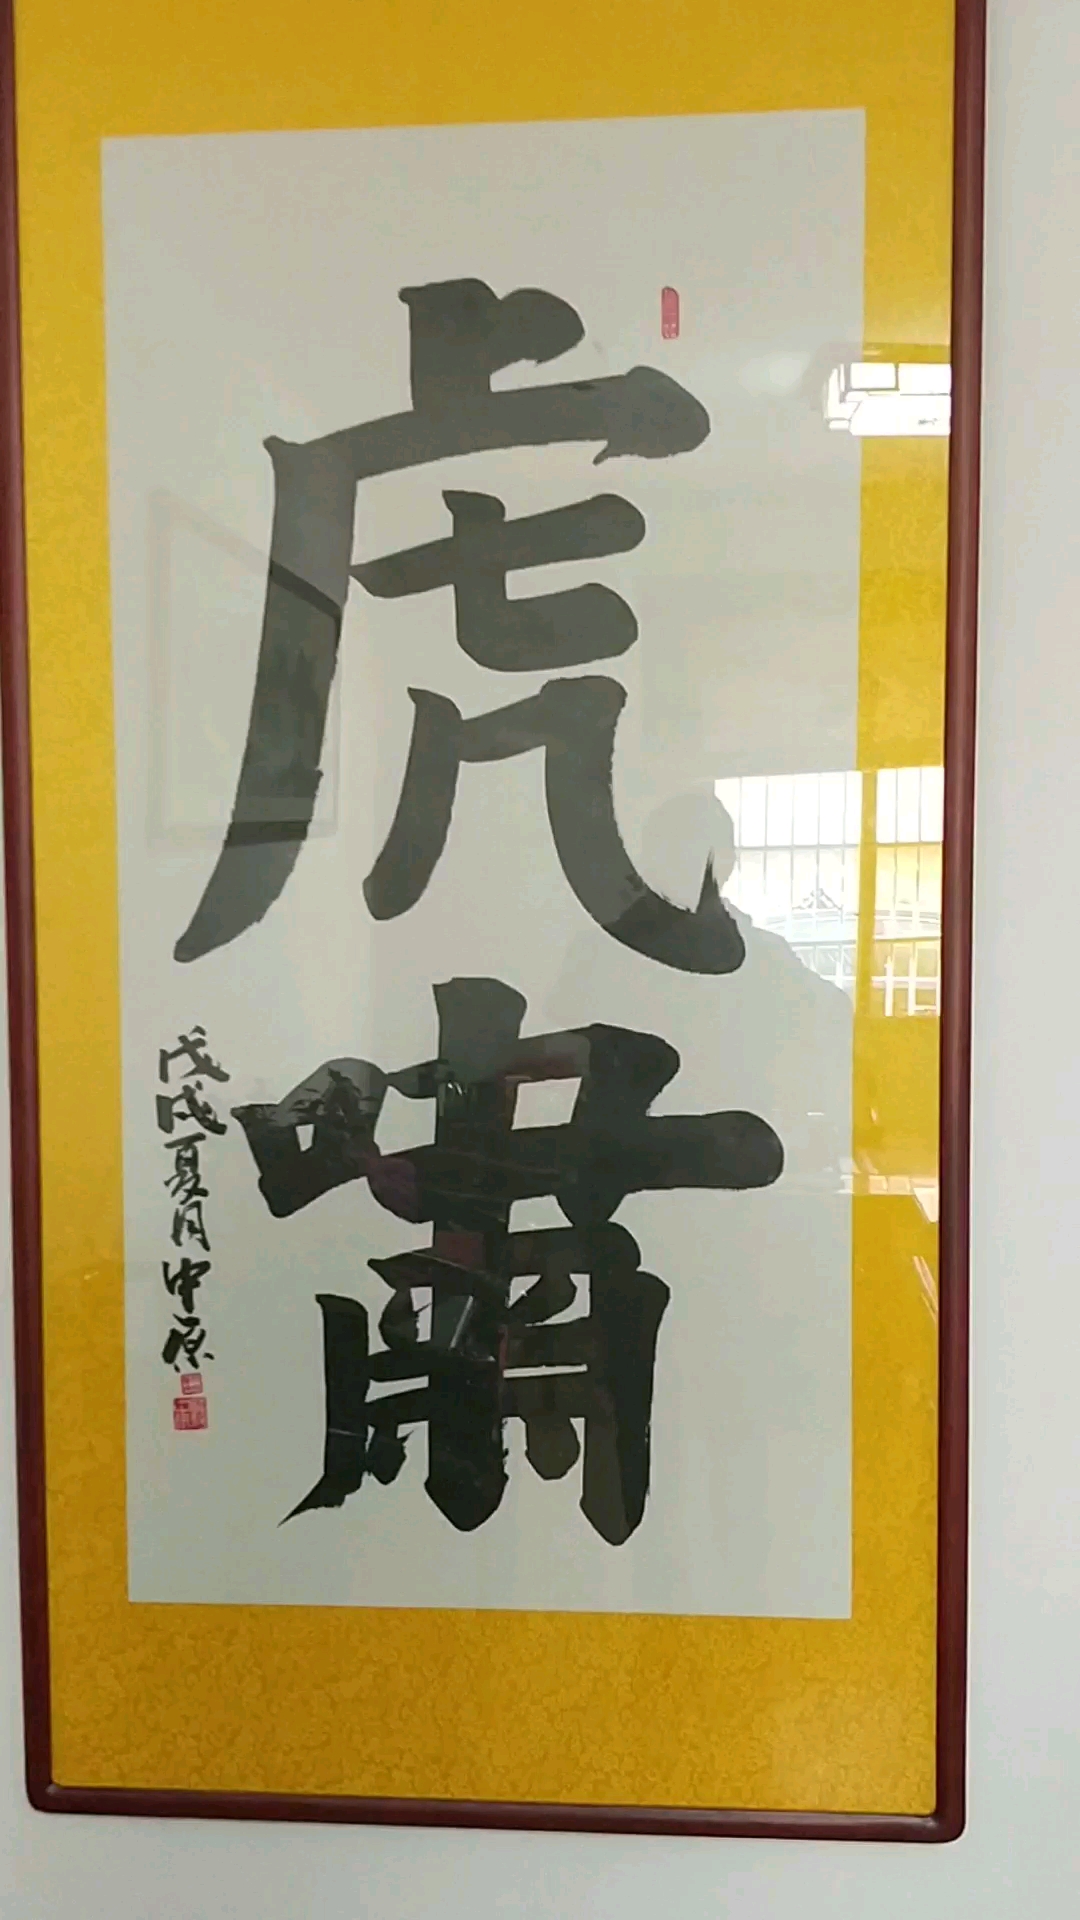 虎
嘯
戊戌夏月中原